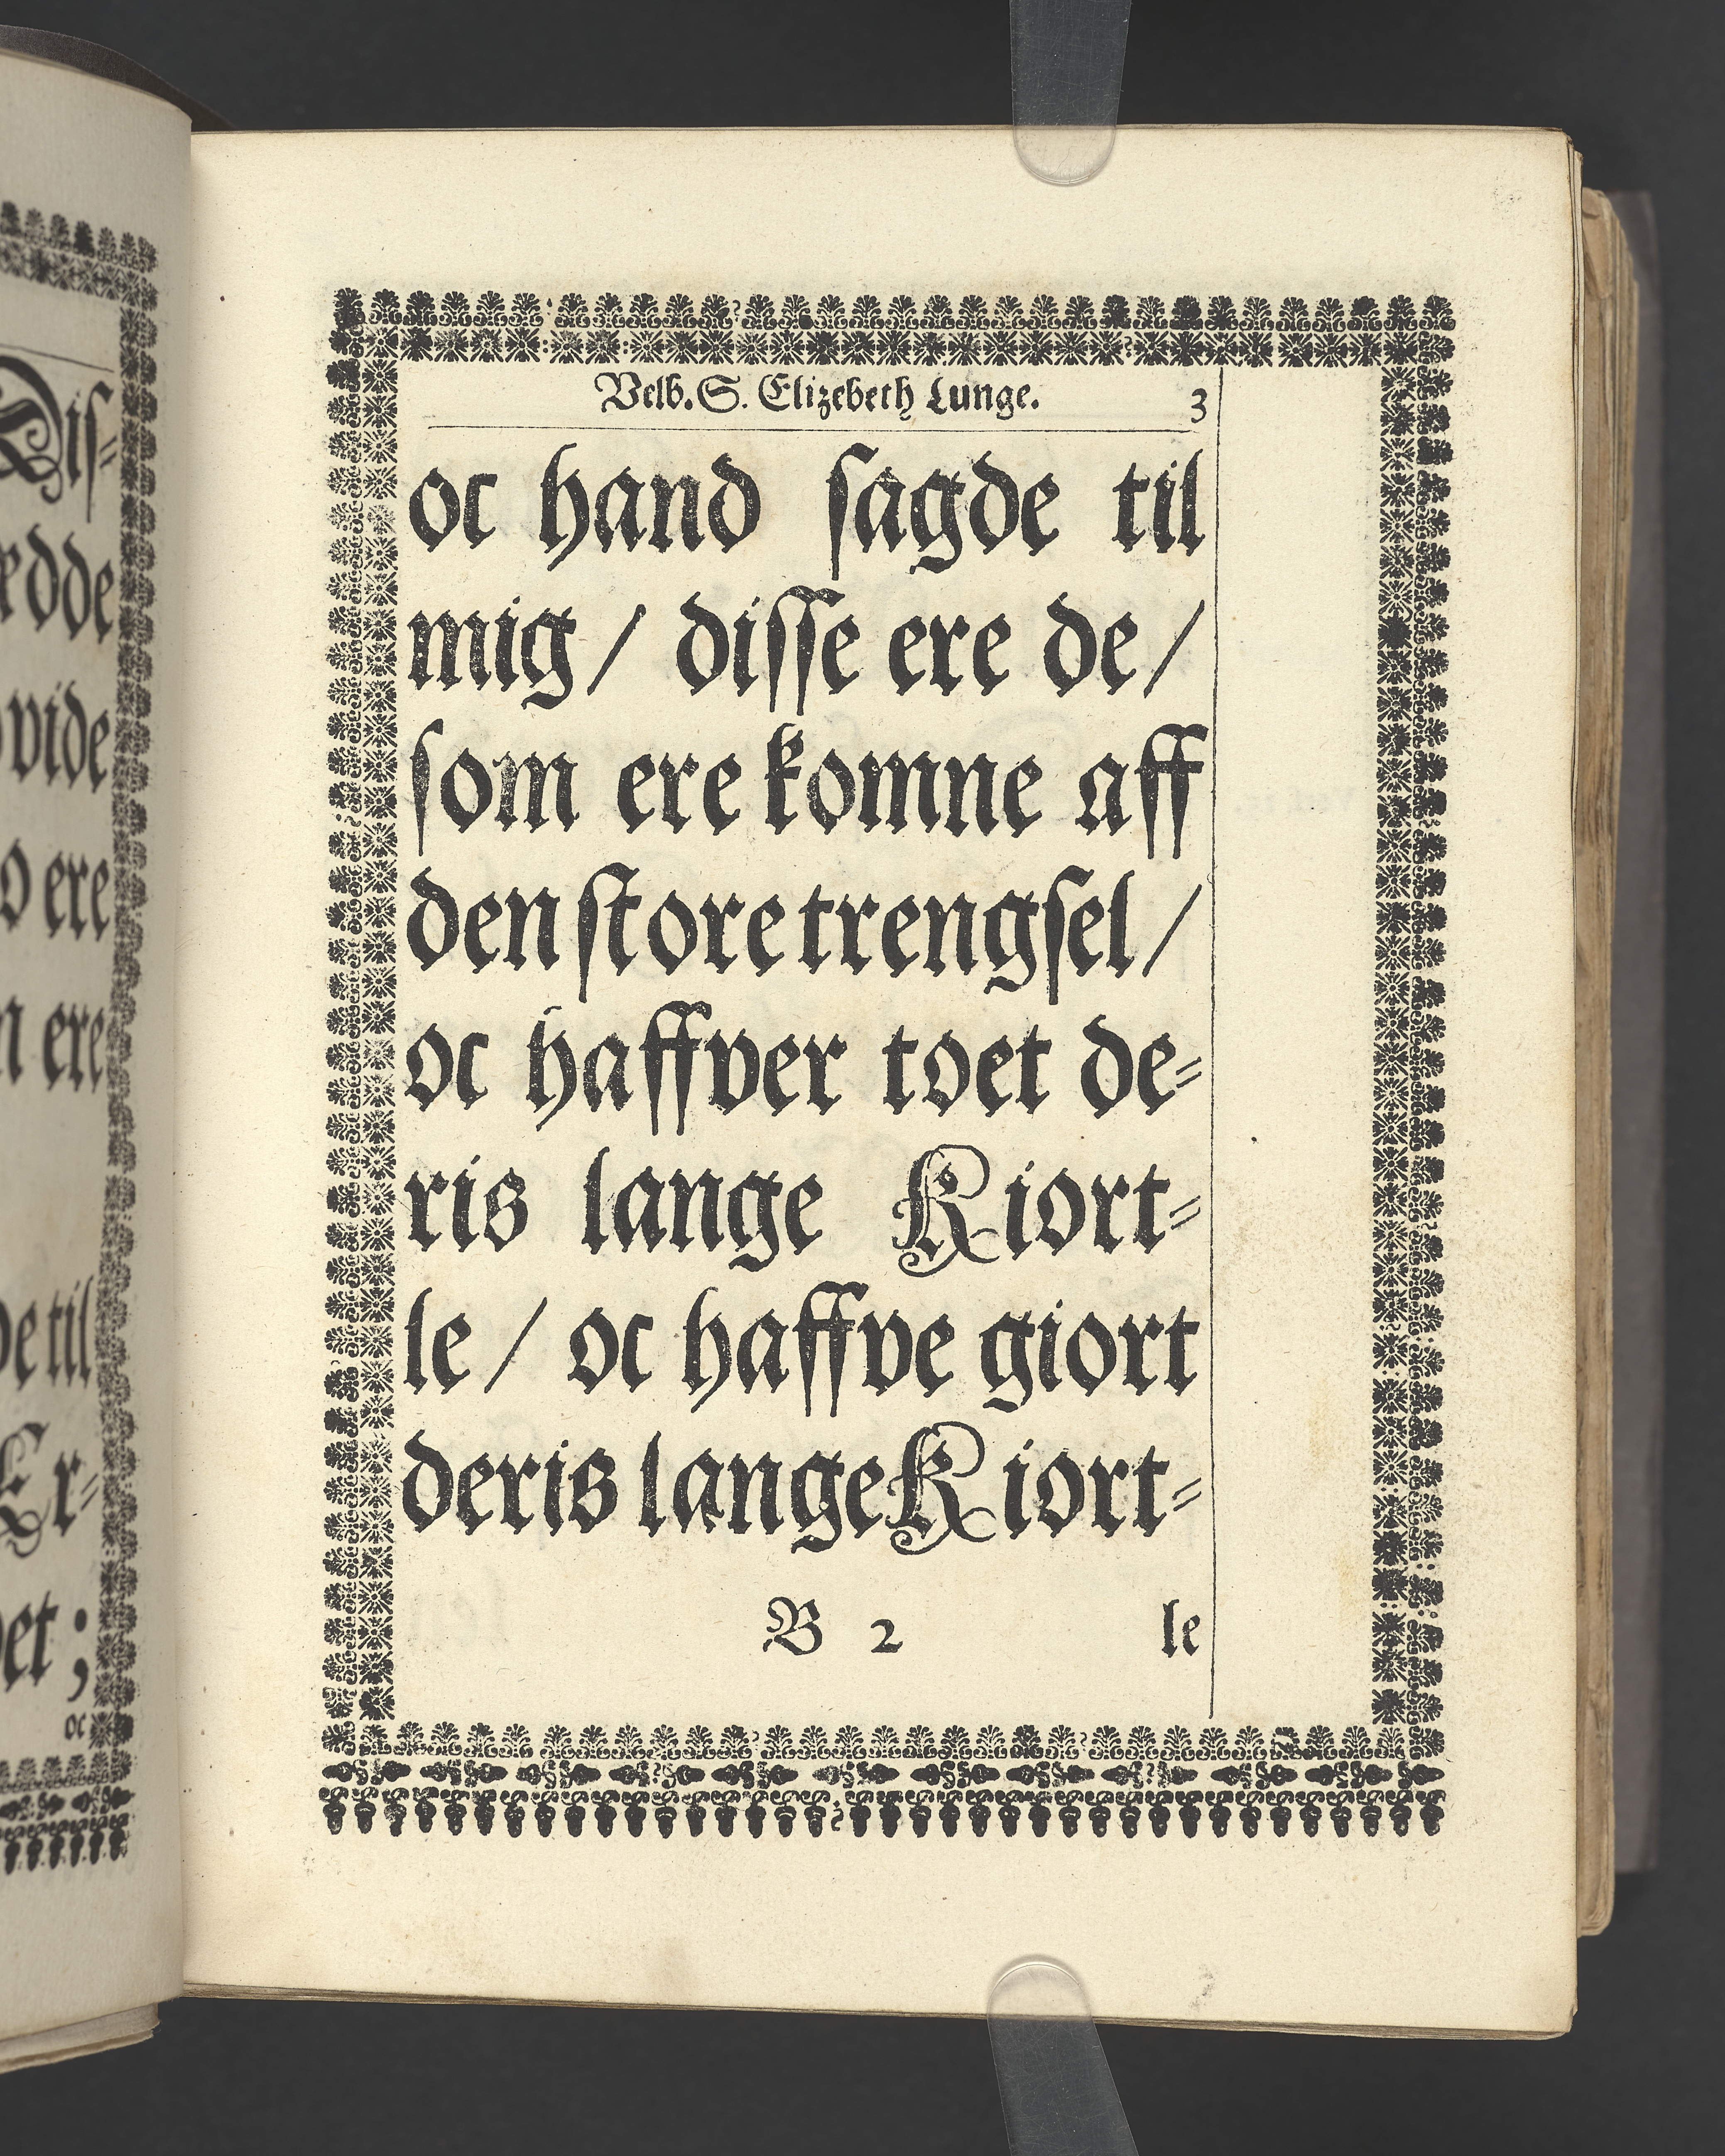 Velb. S. Elizebeth Lunge. 3
oc hand sagde til
mig / disse ere de /
som ere komne aff
den store trengsel /
oc haffver toet de-
ris lange Kiort-
le / oc haffve giort
deris lange Kiort-
B 2 le
Dis-
vide
ere
ere
til
Er-
oc